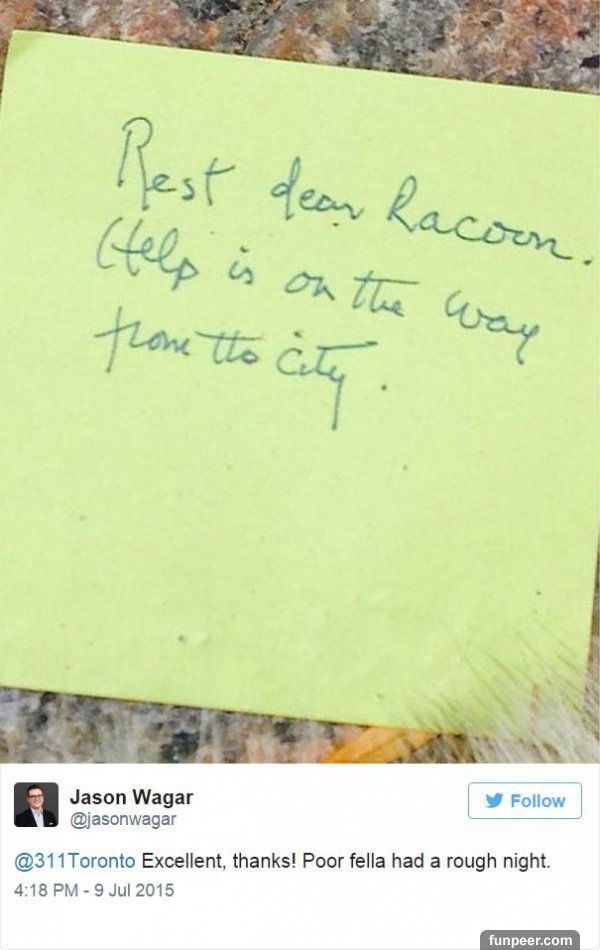 Rest dear Racoon.
Help is on the way
from the city.
Jason Wagar
@jasonwagar
Follow
@311Toronto Excellent, thanks! Poor fella had a rough night.
4:18 PM - 9 Jul 2015
funpeer.com